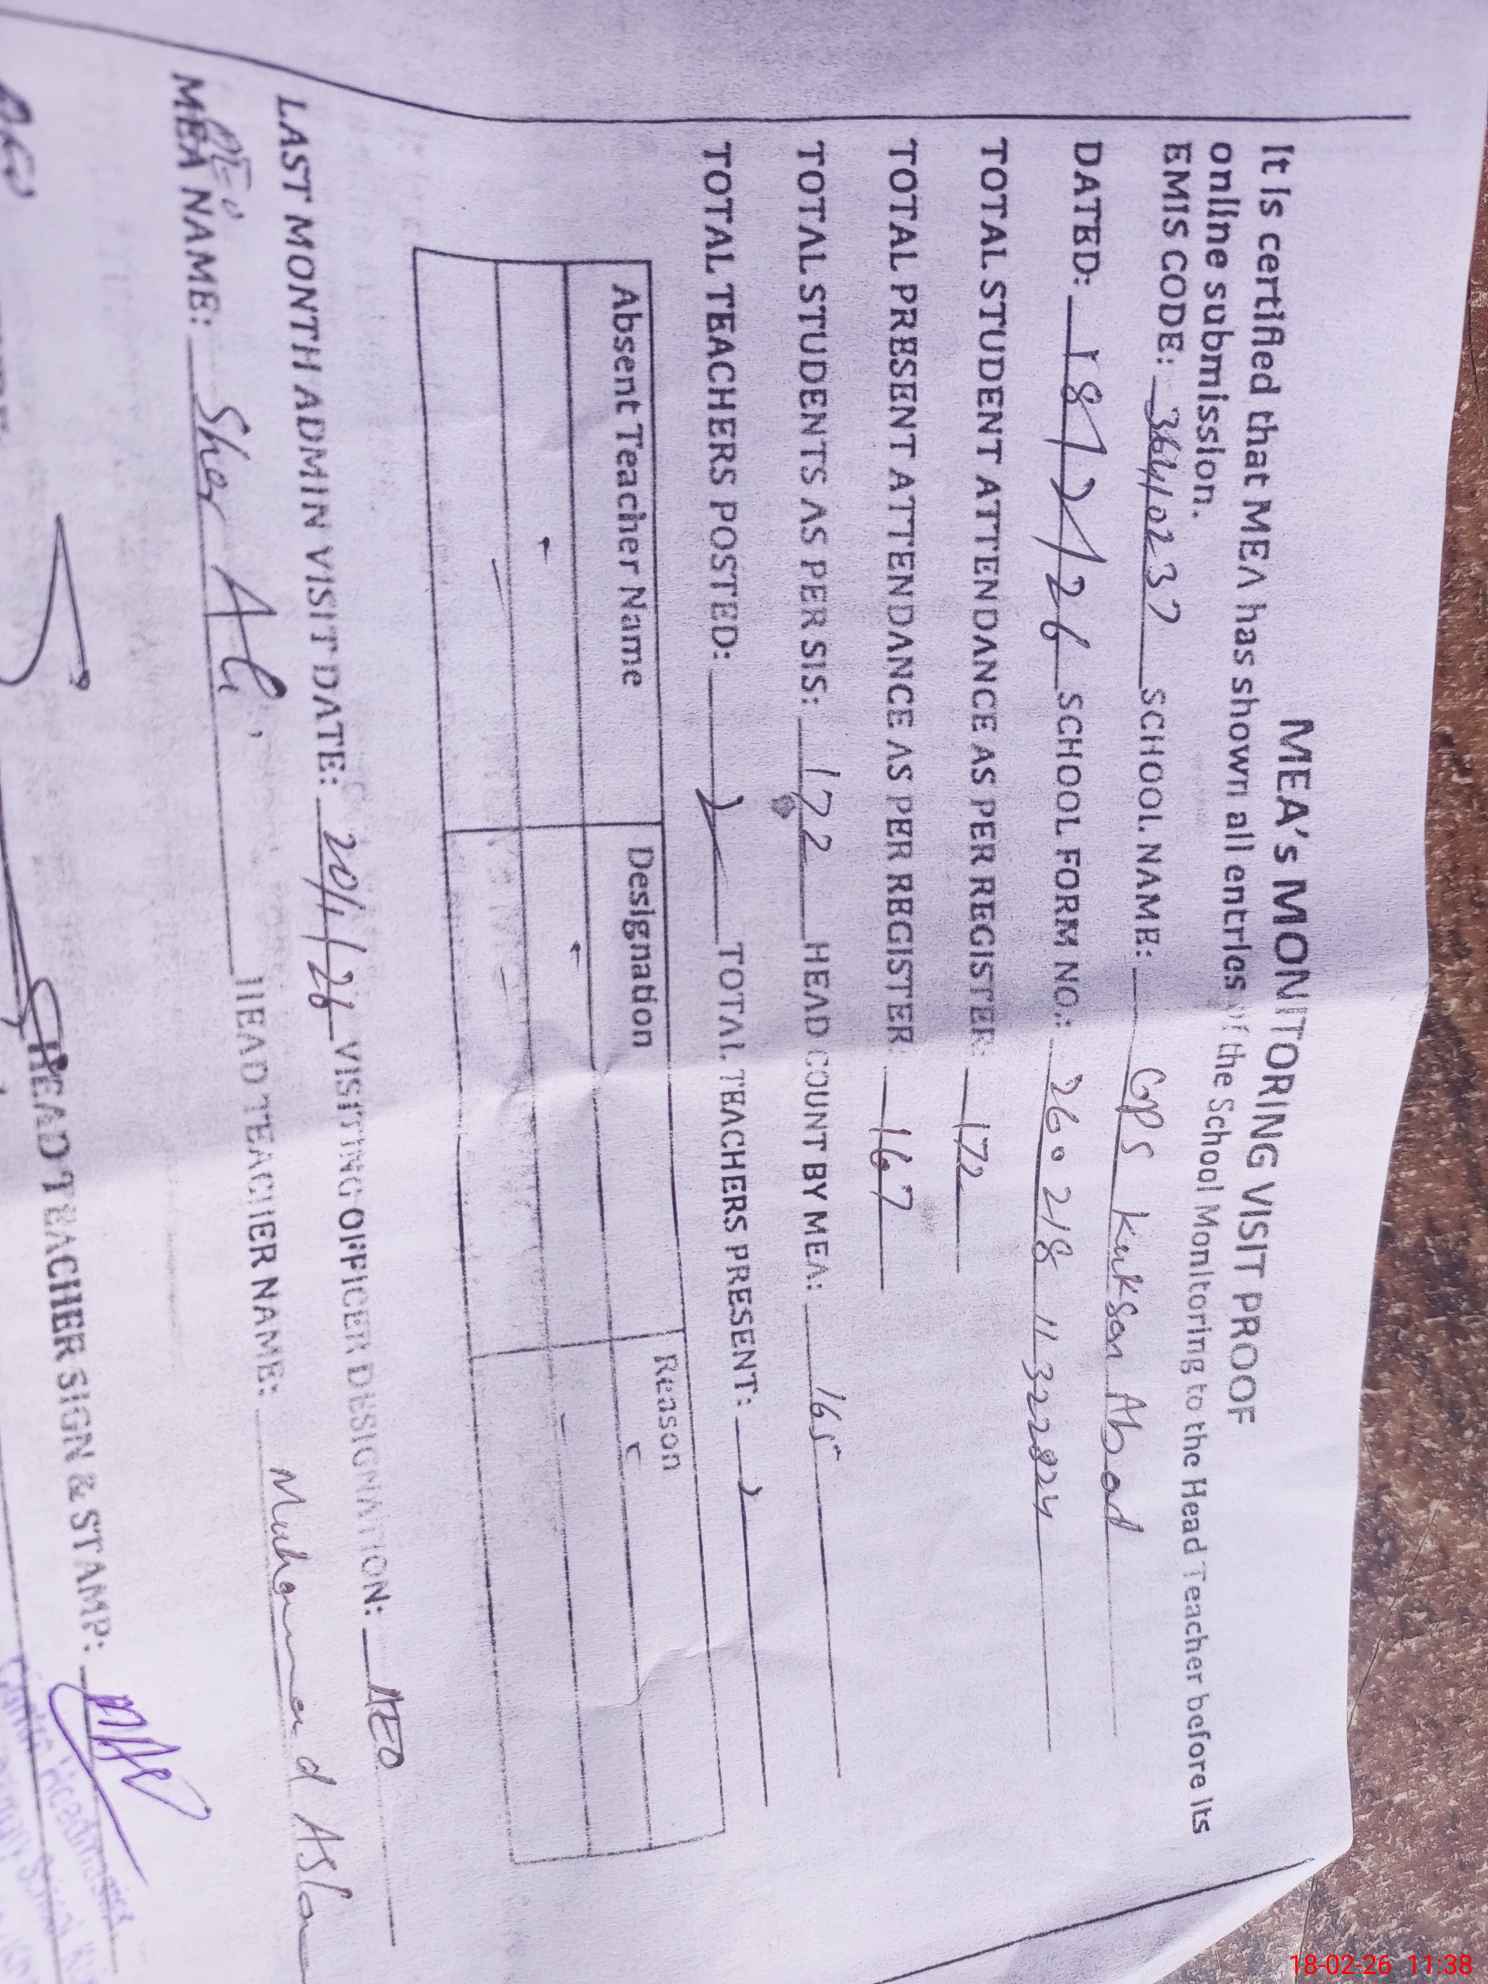 MEA's MONITORING VISIT PROOF
It is certified that MEA has shown all entries of the School Monitoring to the Head Teacher before its
online submission.
EMIS CODE: 36410237 SCHOOL NAME: GPS Kuksan Abad
DATED: 18/2/26 SCHOOL FORM NO.: 26021811322824
TOTAL STUDENT ATTENDANCE AS PER REGISTER: 172
TOTAL PRESENT ATTENDANCE AS PER REGISTER 167
TOTAL STUDENTS AS PER SIS: 172 HEAD COUNT BY MEA: 165
TOTAL TEACHERS POSTED: 2 TOTAL TEACHERS PRESENT: 2
Absent Teacher Name Designation Reason
LAST MONTH ADMIN VISIT DATE: 20/1/26 VISITING OFFICER DESIGNATION: AEO
MEA NAME: Sher Ali HEAD TEACHER NAME: Muhammad Aslam
HEAD TEACHER SIGN & STAMP:
18-02-26 11:38